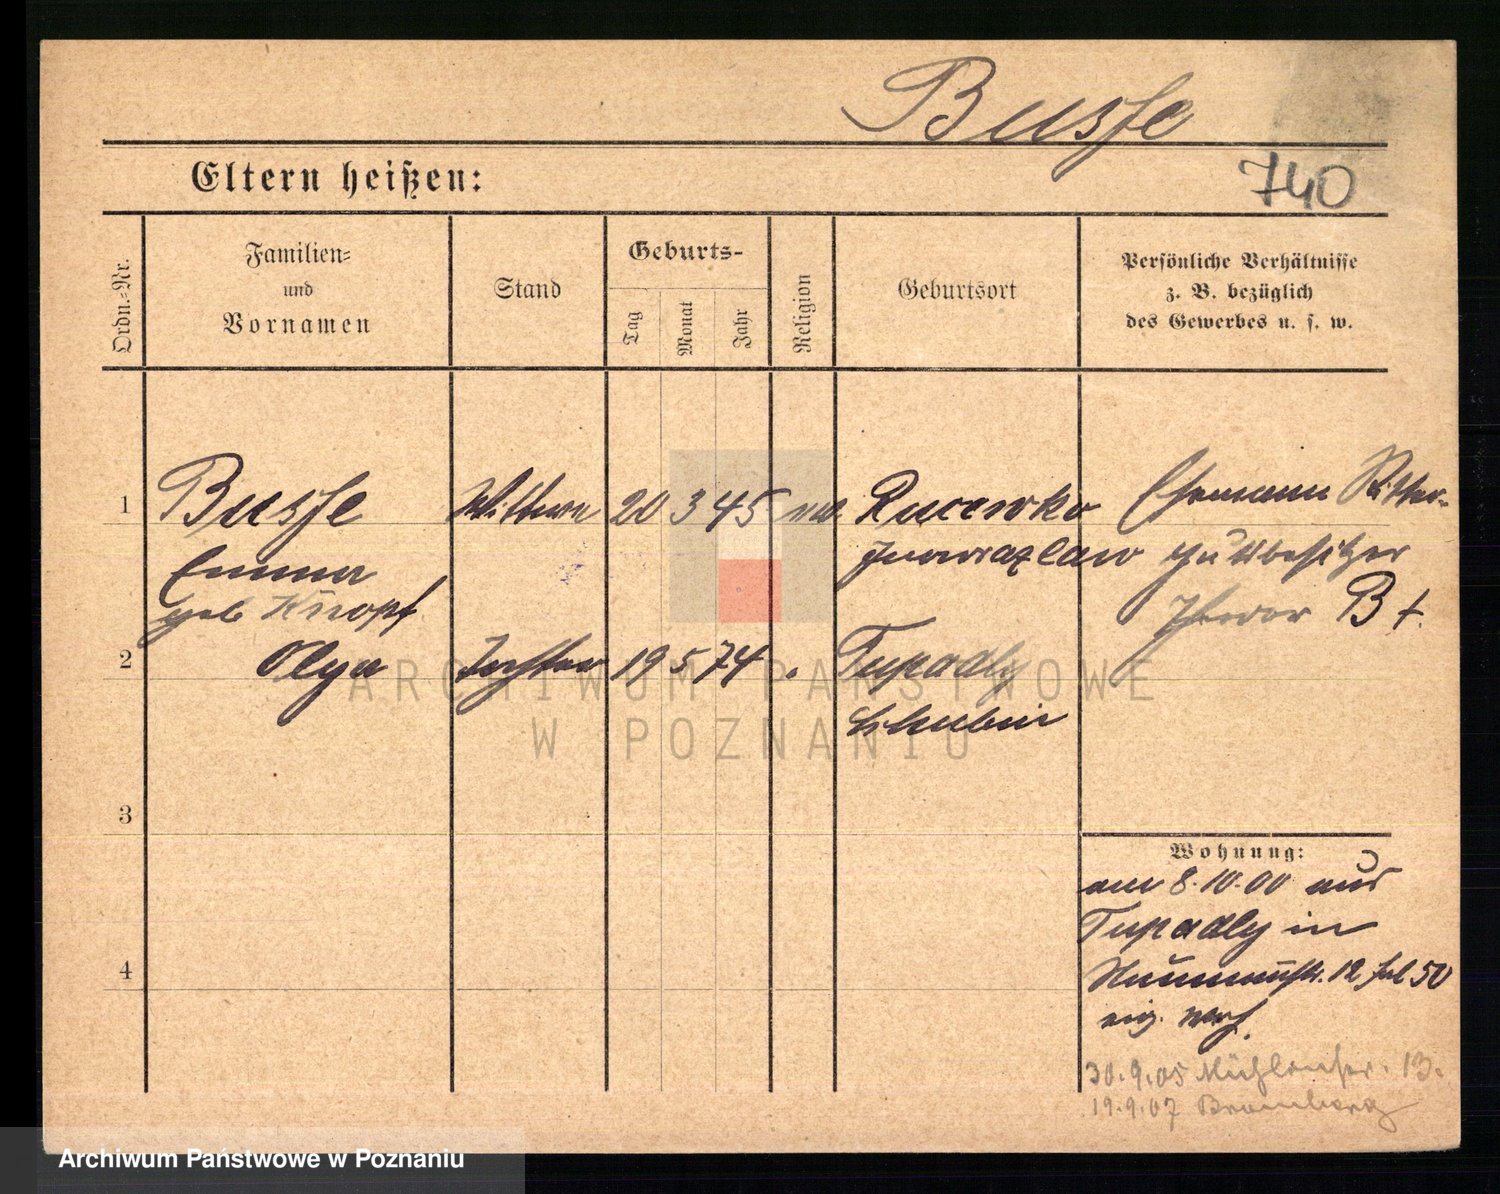 Busse
740
Eltern heißen:
Ordn.-Nr.
Familien-
und
Vornamen
Stand
Geburts-
Tag
Monat
Jahr
Religion
Geburtsort
Persönliche Verhältnisse
z. B. bezüglich
des Gewerbes u. s. w.
1 Busse Wittwe 20 3 45 ev. Rucewko Ehemann Ritter-
Emma Inowrazlaw gutsbesitzer
geb Knopf Theodor B †.
2 Olga Tochter 19 5 74 Tupadly
Schubin
3
4
Wohnung:
am 8.10.00 aus
Tupadly in
Naumannstr. 12 bei 50
eig. Wohn.
30.9.05 Mühlenstr. 13.
19.9.07 Bromberg
ARCHIWUM PAŃSTWOWE
W POZNANIU
Archiwum Państwowe w Poznaniu